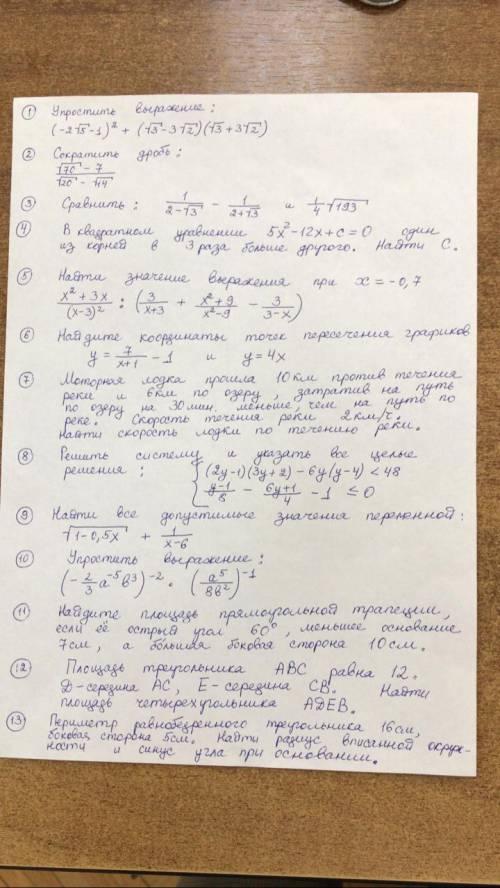 ① Упростить выражение:
(-2√5-1)² + (√3-3√2)(√3+3√2)
② Сократить дробь:
(√70 - 7)/(√20 - √14)
③ Сравнить: 1/(2-√3) - 1/(2+√3) и 1/4 √193
④ В квадратном уравнении 5x²-12x+c=0 один
из корней в 3 раза больше другого. Найти C.
⑤ Найти значение выражения при x=-0,7
(x²+3x)/(x-3)² : (3/(x+3) + (x²+9)/(x²-9) - 3/(3-x))
⑥ Найдите координаты точек пересечения графиков
y = 7/(x+1) - 1 и y=4x
⑦ Моторная лодка прошла 10км против течения
реки и 6км по озеру, затратив на путь
по озеру на 30мин. меньше, чем на путь по
реке. Скорость течения реки 2км/ч.
Найти скорость лодки по течению реки.
⑧ Решить систему и указать все целые
решения: { (2y-1)(3y+2) - 6y(y-4) < 48
(y-1)/8 - (6y+1)/4 - 1 ≤ 0
⑨ Найти все допустимые значения переменной:
√(1-0,5x) + 1/(x-6)
⑩ Упростить выражение:
(-2/3 a⁻⁵b³)⁻² · (a⁵/(8b²))⁻¹
⑪ Найдите площадь прямоугольной трапеции,
если её острый угол 60°, меньшее основание
7см, а большая боковая сторона 10см.
⑫ Площадь треугольника ABC равна 12.
D-середина AC, E-середина CB. Найти
площадь четырехугольника ADEB.
⑬ Периметр равнобедренного треугольника 16см,
боковая сторона 5см. Найти радиус вписанной окруж-
ности и синус угла при основании.